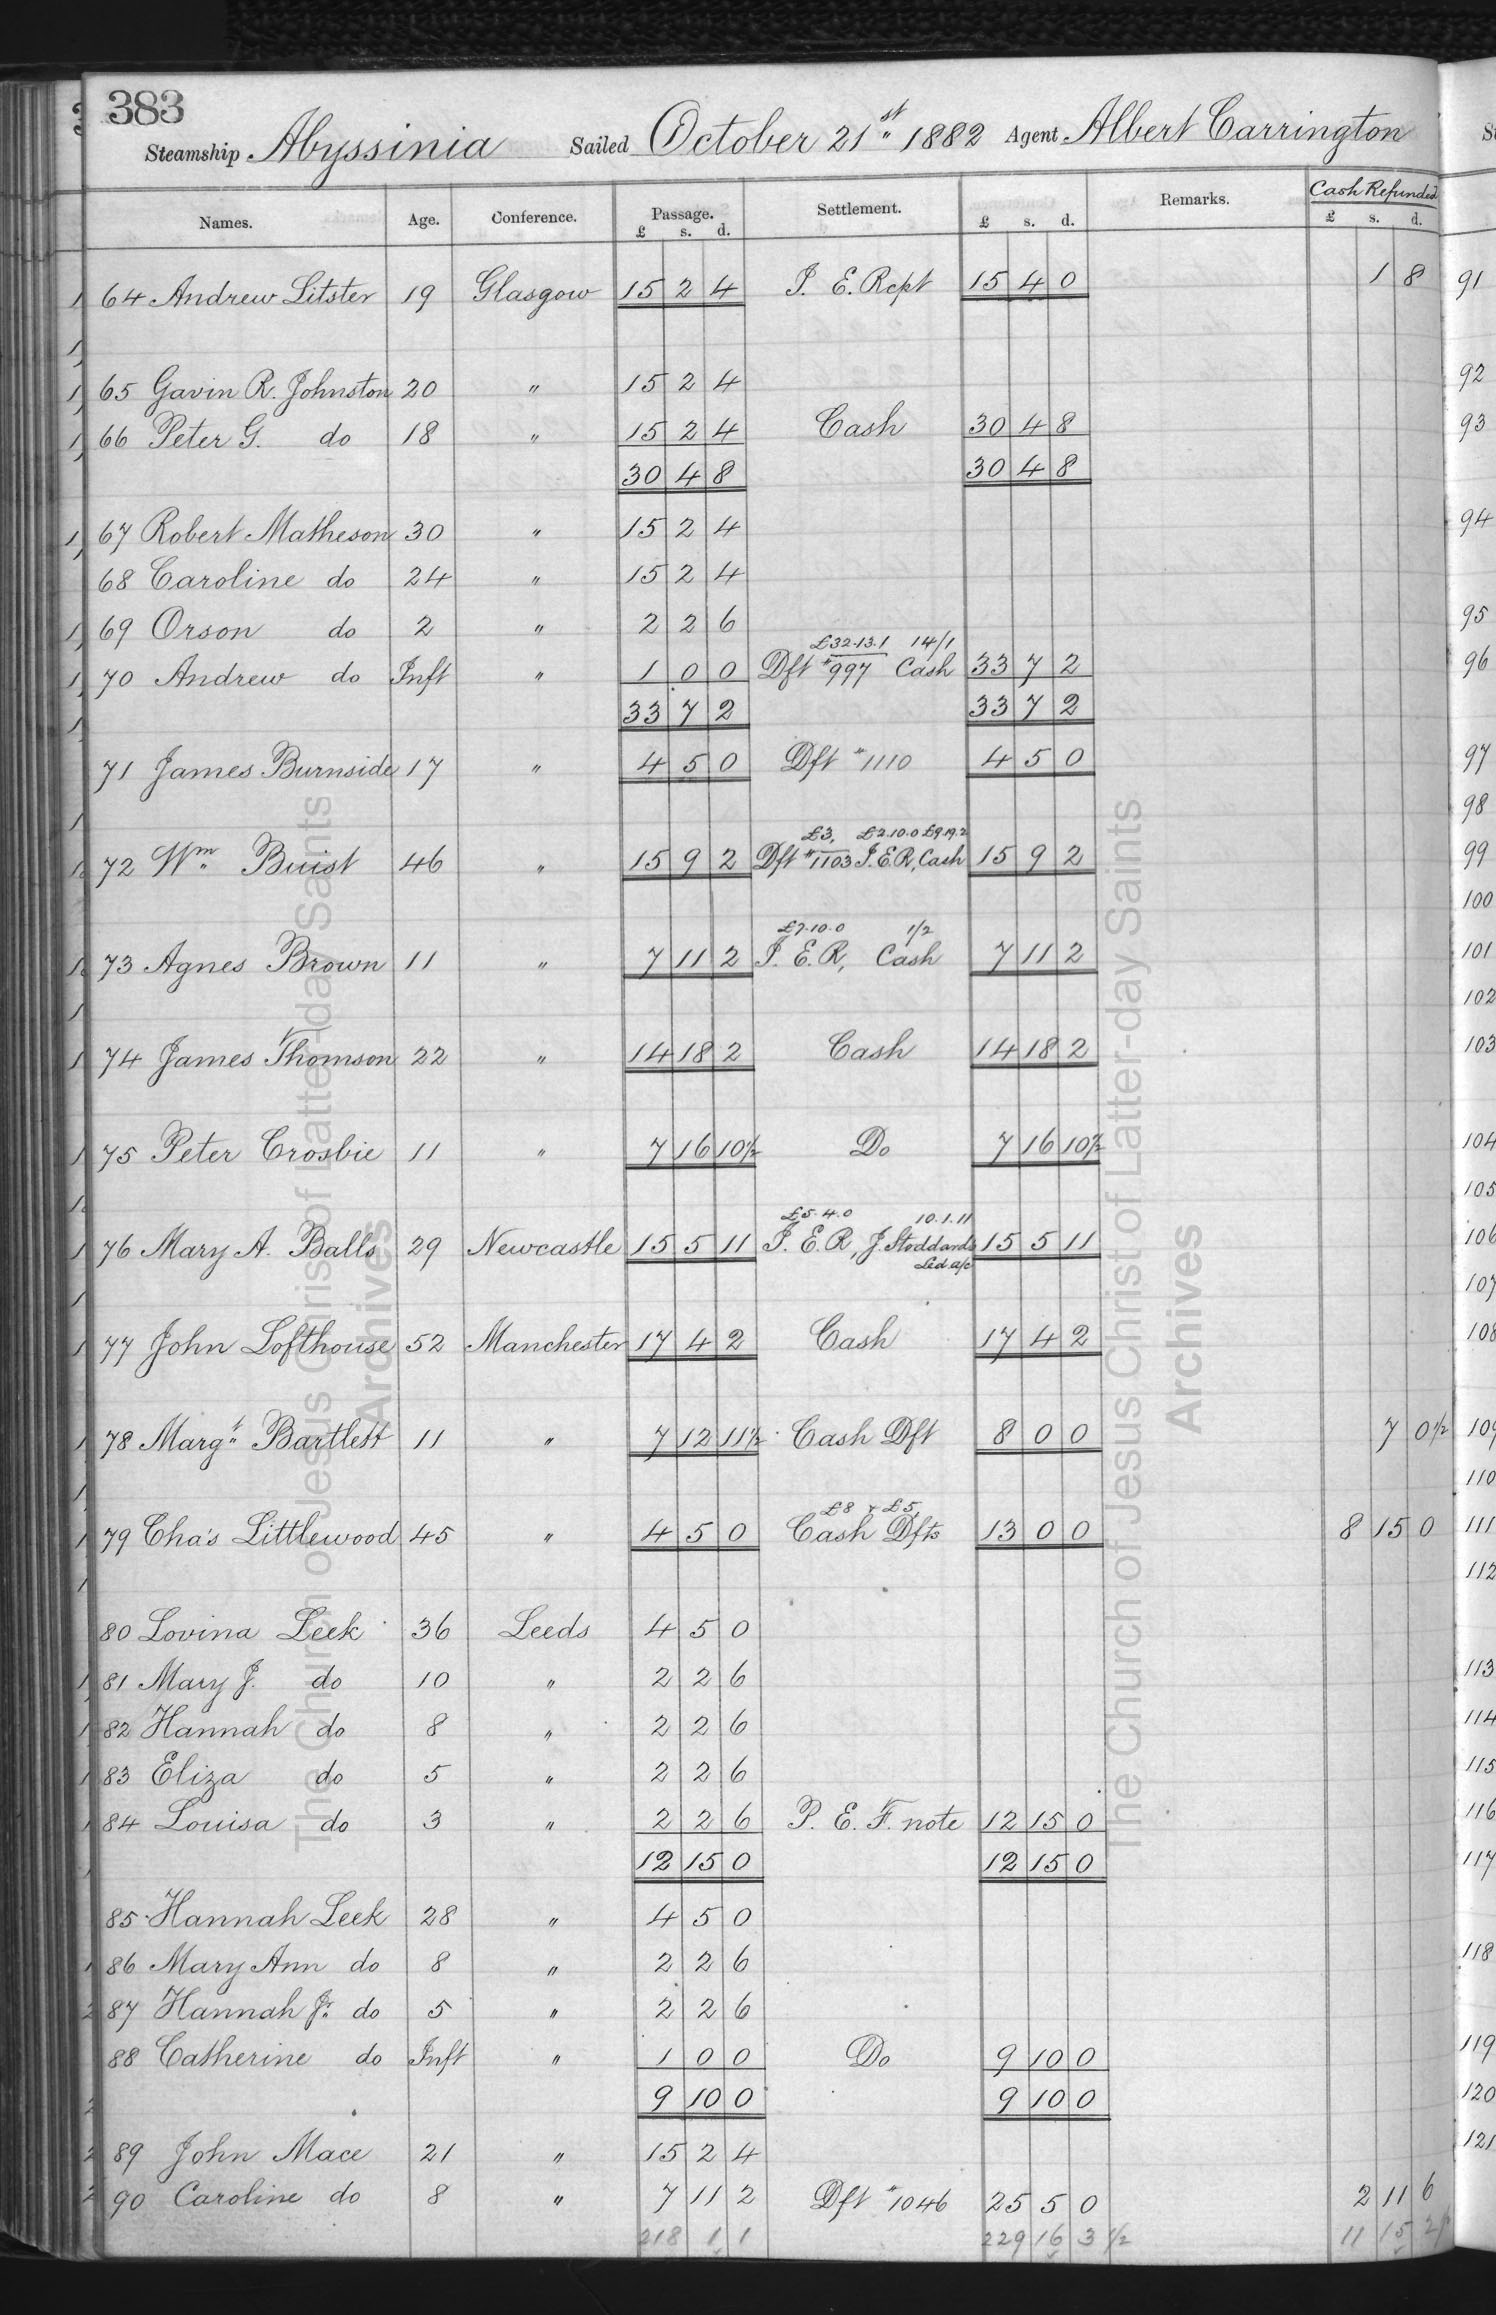 383
Steamship Abyssinia Sailed October 21st 1882 Agent Albert Carrington
Names. Age. Conference. Passage. Settlement. Remarks. Cash Refunded
£ s. d. £ s. d. £ s. d.
64 Andrew Litster 19 Glasgow 15 2 4 I. E. Rcpt 15 4 0 1 8
65 Gavin R. Johnston 20 " 15 2 4
66 Peter G. do 18 " 15 2 4 Cash 30 4 8
30 4 8 30 4 8
67 Robert Matheson 30 " 15 2 4
68 Caroline do 24 " 15 2 4
69 Orson do 2 " 2 2 6
£32.13.1 14/1
70 Andrew do Inft " 1 0 0 Dft #997 Cash 33 7 2
33 7 2 33 7 2
71 James Burnside 17 " 4 5 0 Dft #1110 4 5 0
£3, £2.10.0 £9.19.2
72 Wm Buist 46 " 15 9 2 Dft #1103 I.E.R, Cash 15 9 2
£7.10.0 1/2
73 Agnes Brown 11 " 7 11 2 I. E. R, Cash 7 11 2
74 James Thomson 22 " 14 18 2 Cash 14 18 2
75 Peter Crosbie 11 " 7 16 10½ Do 7 16 10½
£5.4.0 10.1.11
76 Mary A. Balls 29 Newcastle 15 5 11 I. E. R, J. Stoddards 15 5 11
Led. a/c
77 John Lofthouse 52 Manchester 17 4 2 Cash 17 4 2
78 Margt Bartlett 11 " 7 12 11½ Cash Dft 8 0 0 7 0½
£8 & £5,
79 Cha's Littlewood 45 " 4 5 0 Cash Dfts 13 0 0 8 15 0
80 Lovina Leek 36 Leeds 4 5 0
81 Mary J. do 10 " 2 2 6
82 Hannah do 8 " 2 2 6
83 Eliza do 5 " 2 2 6
84 Louisa do 3 " 2 2 6 P. E. F. note 12 15 0
12 15 0 12 15 0
85 Hannah Leek 28 " 4 5 0
86 Mary Ann do 8 " 2 2 6
87 Hannah Jr. do 5 " 2 2 6
88 Catherine do Inft " 1 0 0 Do 9 10 0
9 10 0 9 10 0
89 John Mace 21 " 15 2 4
90 Caroline do 8 " 7 11 2 Dft #1046 25 5 0 2 11 6
218 1 1 229 16 3 ½ 11 15 2½
91
92
93
94
95
96
97
98
99
100
101
102
103
104
105
106
107
108
109
110
111
112
113
114
115
116
117
118
119
120
121
The Church of Jesus Christ of Latter-day Saints
Archives
The Church of Jesus Christ of Latter-day Saints
Archives